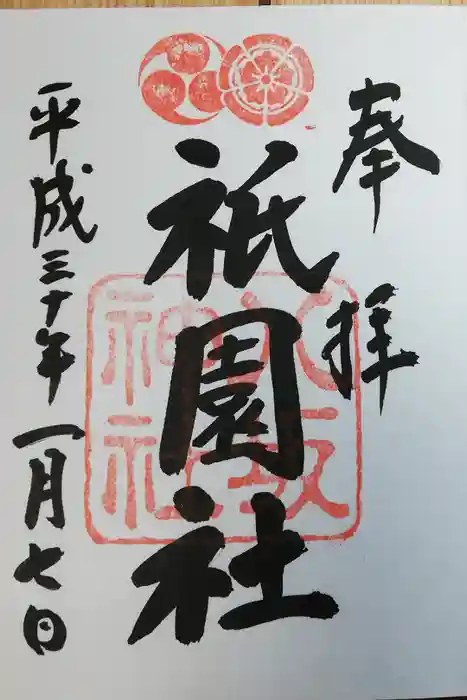 奉拝
祇園社
八坂神社
平成三十年一月七日